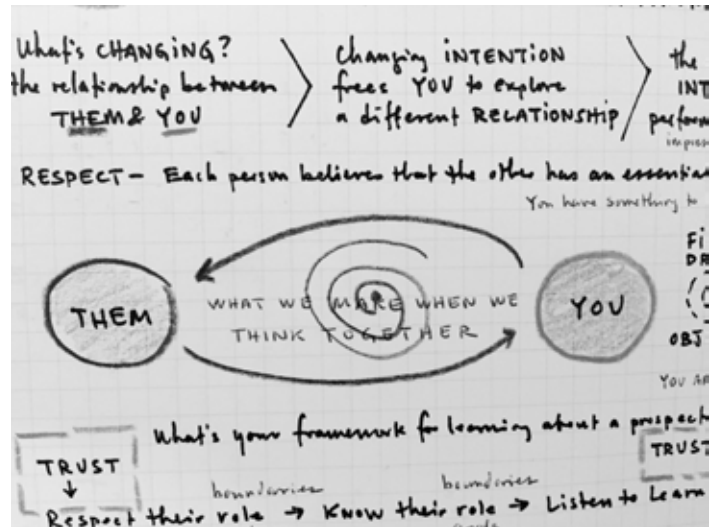 What's CHANGING?
the relationship between
THEM & YOU
Changing INTENTION
frees YOU to explore
a different RELATIONSHIP
the
INT
perform
impress
RESPECT — Each person believes that the other has an essential
You have something to
THEM
WHAT WE MAKE WHEN WE
THINK TOGETHER
YOU
Fi
DR
OBJ
YOU AR
What's your framework for learning about a prospect
TRUST
TRUST
boundaries
boundaries
Respect their role → KNOW their role → Listen to Learn